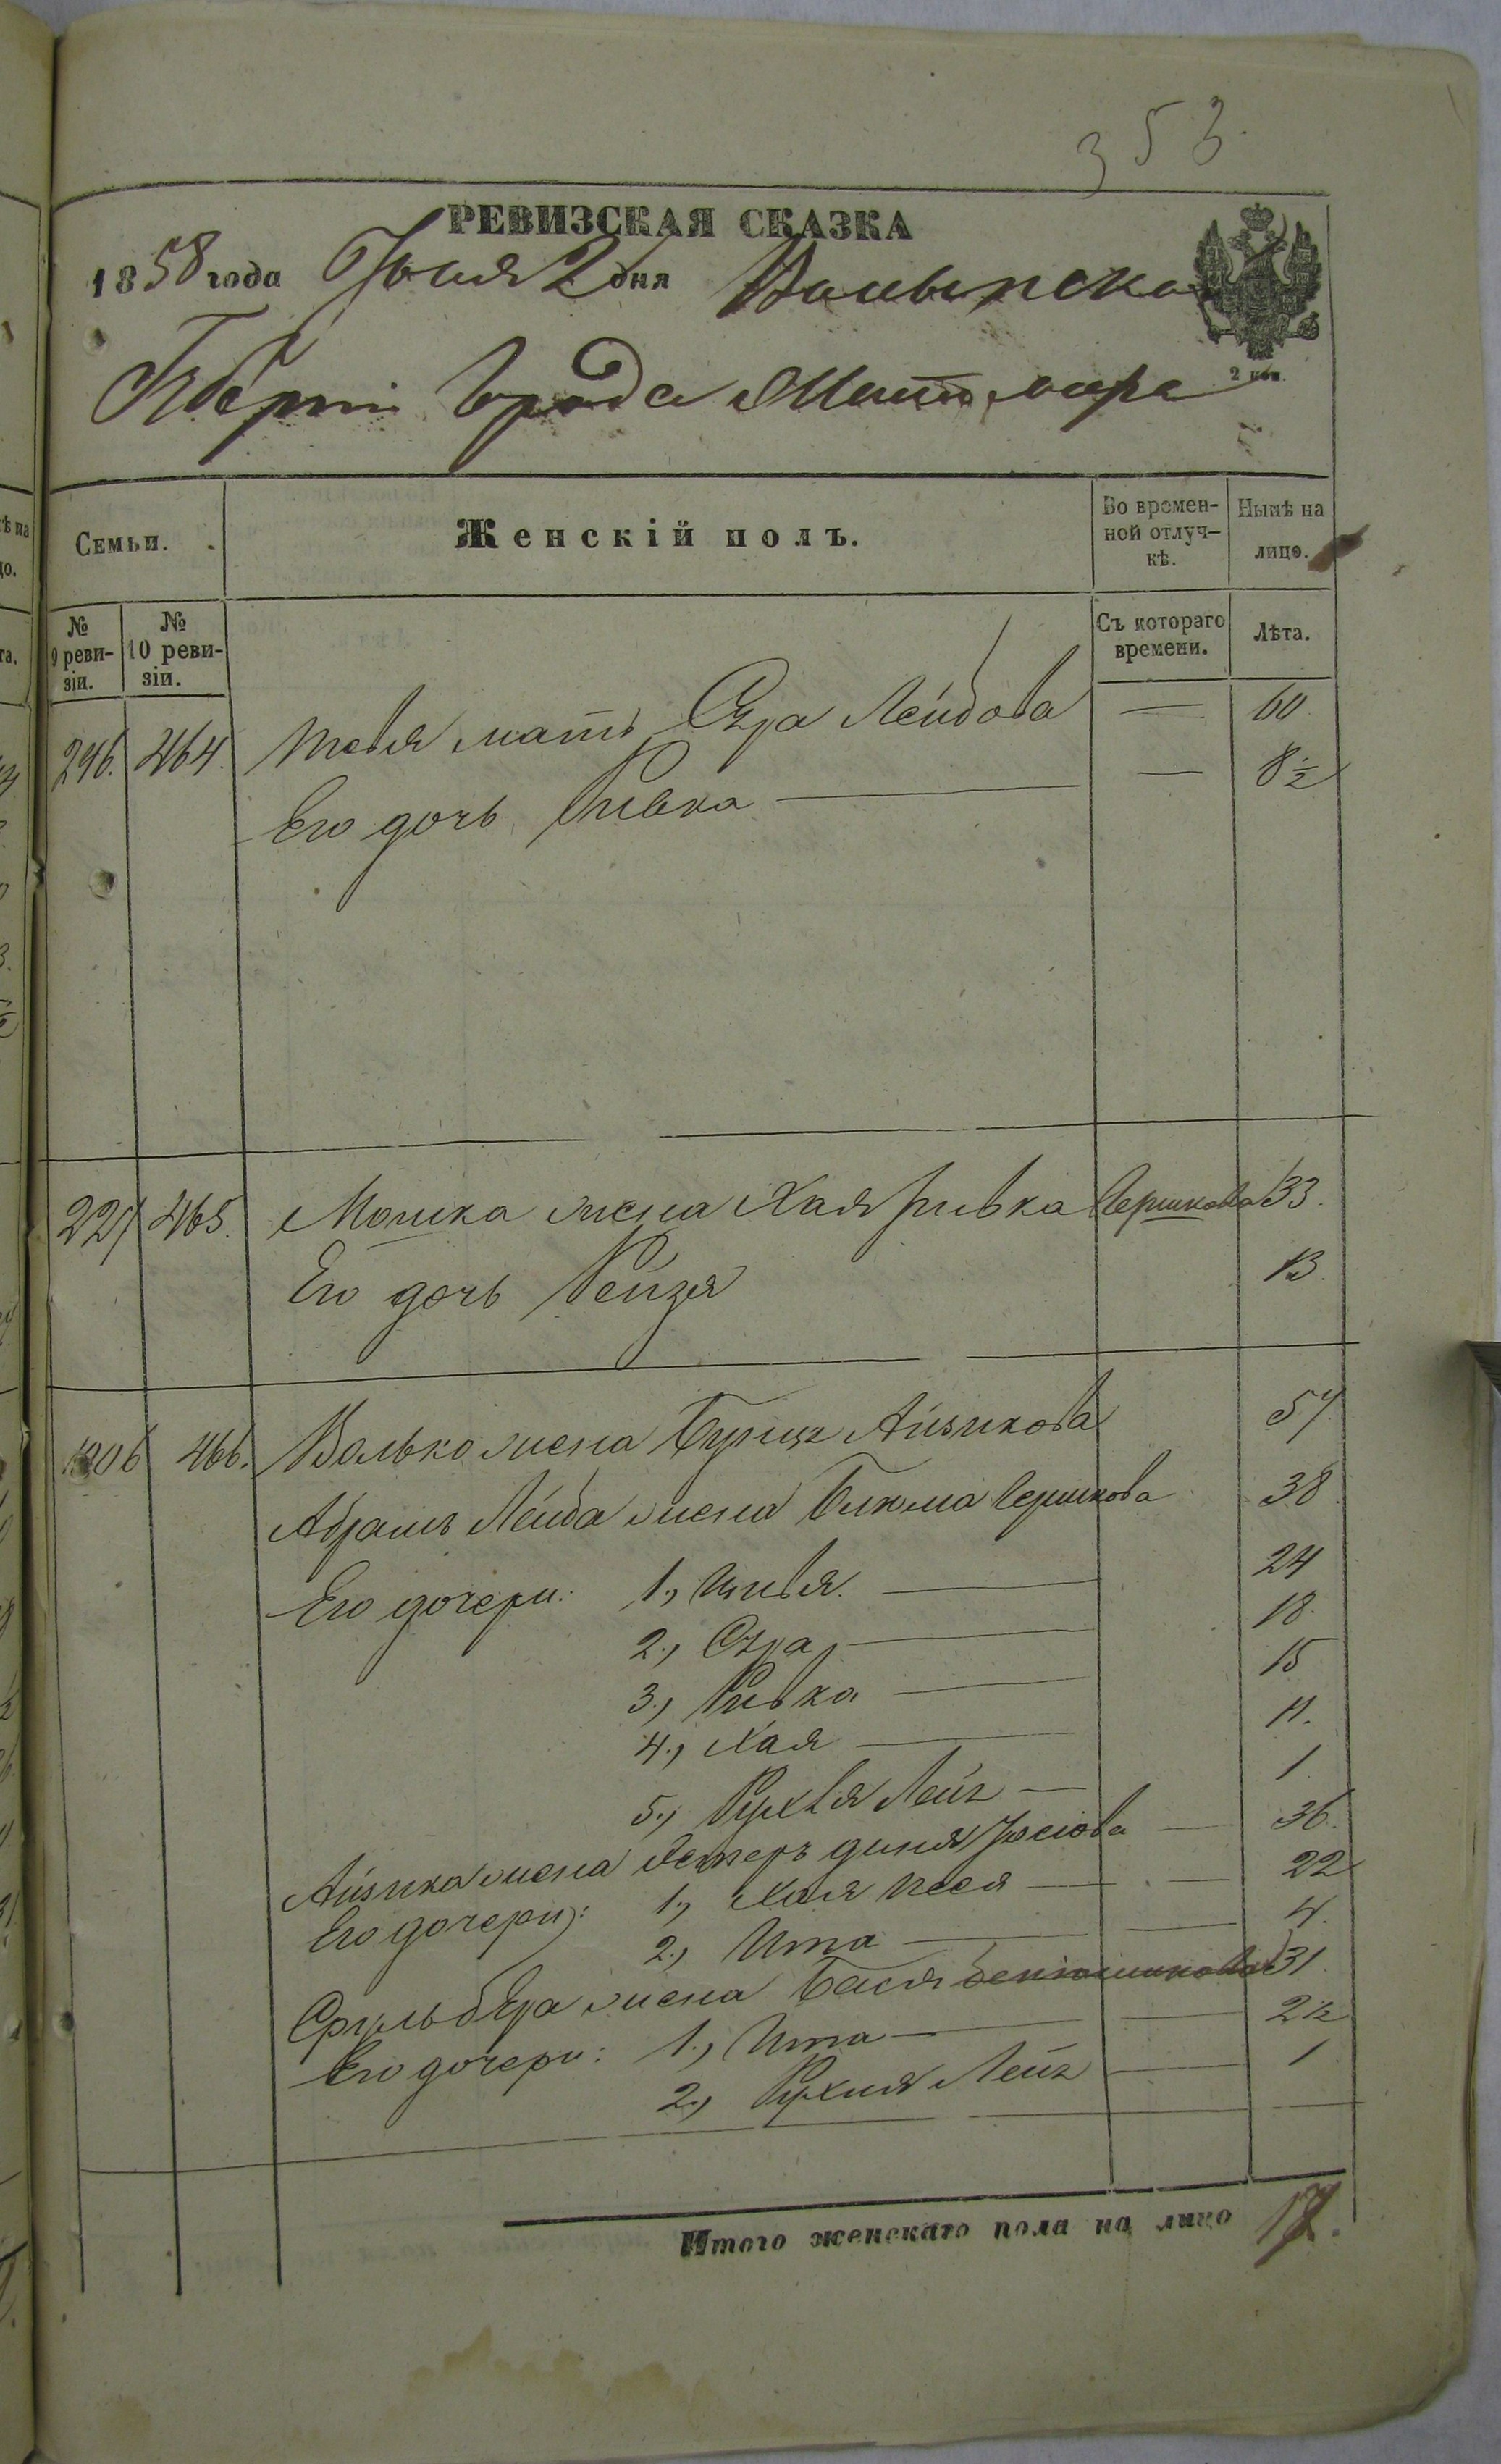 353.
РЕВИЗСКАЯ СКАЗКА
1858 года Июня 2 дня Волынской
Губерніи Города Житомира
2 коп.
Семьи.
Женскій полъ.
Во времен-
ной отлуч-
кѣ.
Нынѣ на
лицо.
№
9 реви-
зіи.
№
10 реви-
зіи.
Съ котораго
времени.
Лѣта.
464. мать Сура Лейбова — 60
Его дочь Ривка — 8½
227 465. Мошка жена Хая Ривка Гершкова 33.
Его дочь Рейзя 13.
466. Волько жена Айзикова 57
Абрамъ Лейба жена Блюма Гершкова 38
Его дочери: 1., Цивля. 24
2., Сура 18.
3., Ривка 15
4., Хая 11.
5., Рухля Лея 1
Айзика жена Эстеръ Диня Іосіова 36.
Его дочери: 1., Хая Песя 22
2., Ита 4.
Сруль Бера жена Бася 31
Его дочери: 1., Ита 2½
2., Рухля Лея 1
Итого женскаго пола на лицо 17.